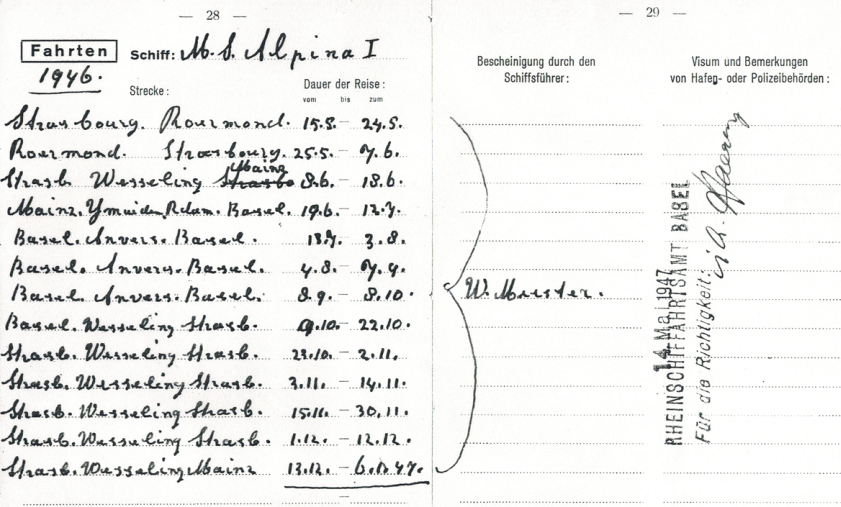 — 28 —
Fahrten
Schiff: M. S. Alpina I
1946.
Strecke:
Dauer der Reise:
vom bis zum
Strasbourg. Roermond. 15.5. – 24.5.
Roermond. Strasbourg. 25.5. – 7.6.
Mainz
Strasb. Wesseling Strasb 8.6. – 18.6.
Mainz. Ymuiden. Rdam. Basel. 19.6. – 12.7.
Basel. Anvers. Basel. 13.7. – 3.8.
Basel. Anvers. Basel. 4.8. – 7.9.
Basel. Anvers. Basel. 8.9. – 8.10.
Basel. Wesseling Strasb. 9.10. – 22.10.
Strasb. Wesseling Strasb. 23.10. – 2.11.
Strasb. Wesseling Strasb. 3.11. – 14.11.
Strasb. Wesseling Strasb. 15.11. – 30.11.
Strasb. Wesseling Strasb. 1.12. – 12.12.
Strasb. Wesseling Mainz 13.12. – 6.1.47.
— 29 —
Bescheinigung durch den
Schiffsführer:
Visum und Bemerkungen
von Hafen- oder Polizeibehörden:
W. Meister.
14. Mai 1947
RHEINSCHIFFAHRTSAMT BASEL
Für die Richtigkeit: